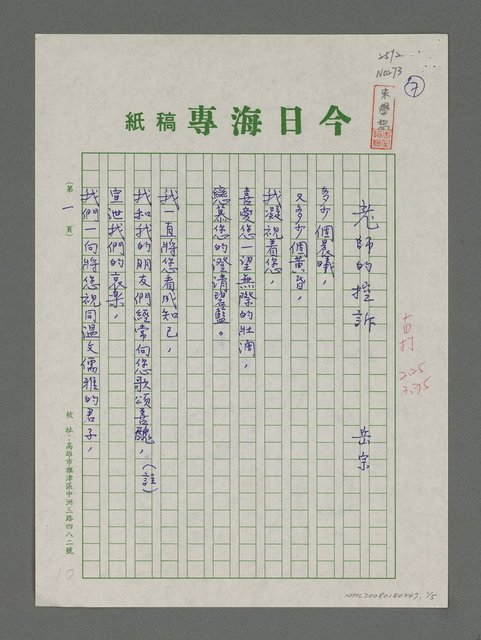 25½
NO273
7
朱學恕
今日海專 稿紙
老師的控訴
岳宗
多少個晨曦，
又多少個黃昏，
我凝視着您，
喜愛您一望無際的壯濶，
戀慕您的澄清碧藍。
我一直將您看成知己，
我和我的朋友們經常向您歌頌喜醜，（註）
宣泄我們的哀樂，
我們一向將您視同溫文儒雅的君子，
(第一頁)
校 址：高雄市旗津區中洲三路四八二號